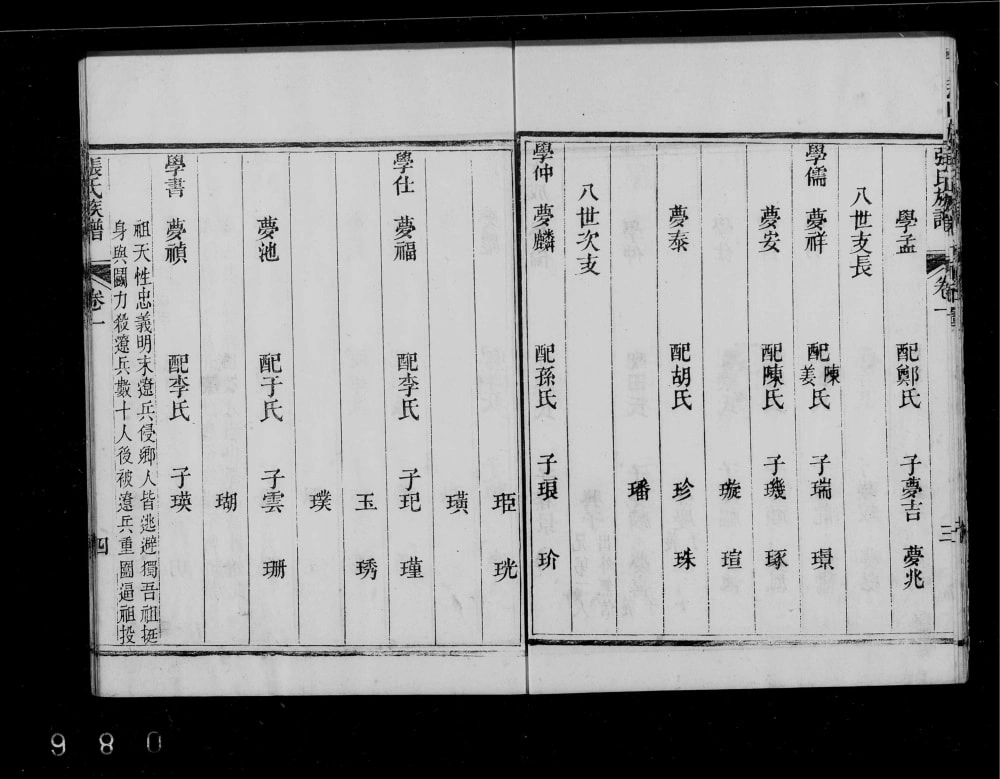 張氏族譜 卷一 三
學孟 配鄭氏 子夢吉 夢兆
八世支長
學儒 夢祥 配陳姜氏 子瑞 璟
夢安 配陳氏 子璣 琢
璇 瑄
夢泰 配胡氏 珍 珠
璠
八世次支
學仲 夢麟 配孫氏 子珢 玠
珤 珖
璜
學仕 夢福 配李氏 子玘 瑾
玉 琇
璞
夢池 配于氏 子雲 珊
瑚
學書 夢禎 配李氏 子瑛
祖天性忠義明末遼兵侵鄉人皆逃避獨吾祖挺
身與鬬力殺遼兵數十人後被遼兵重圍逼祖投
張氏族譜 卷一 四
980